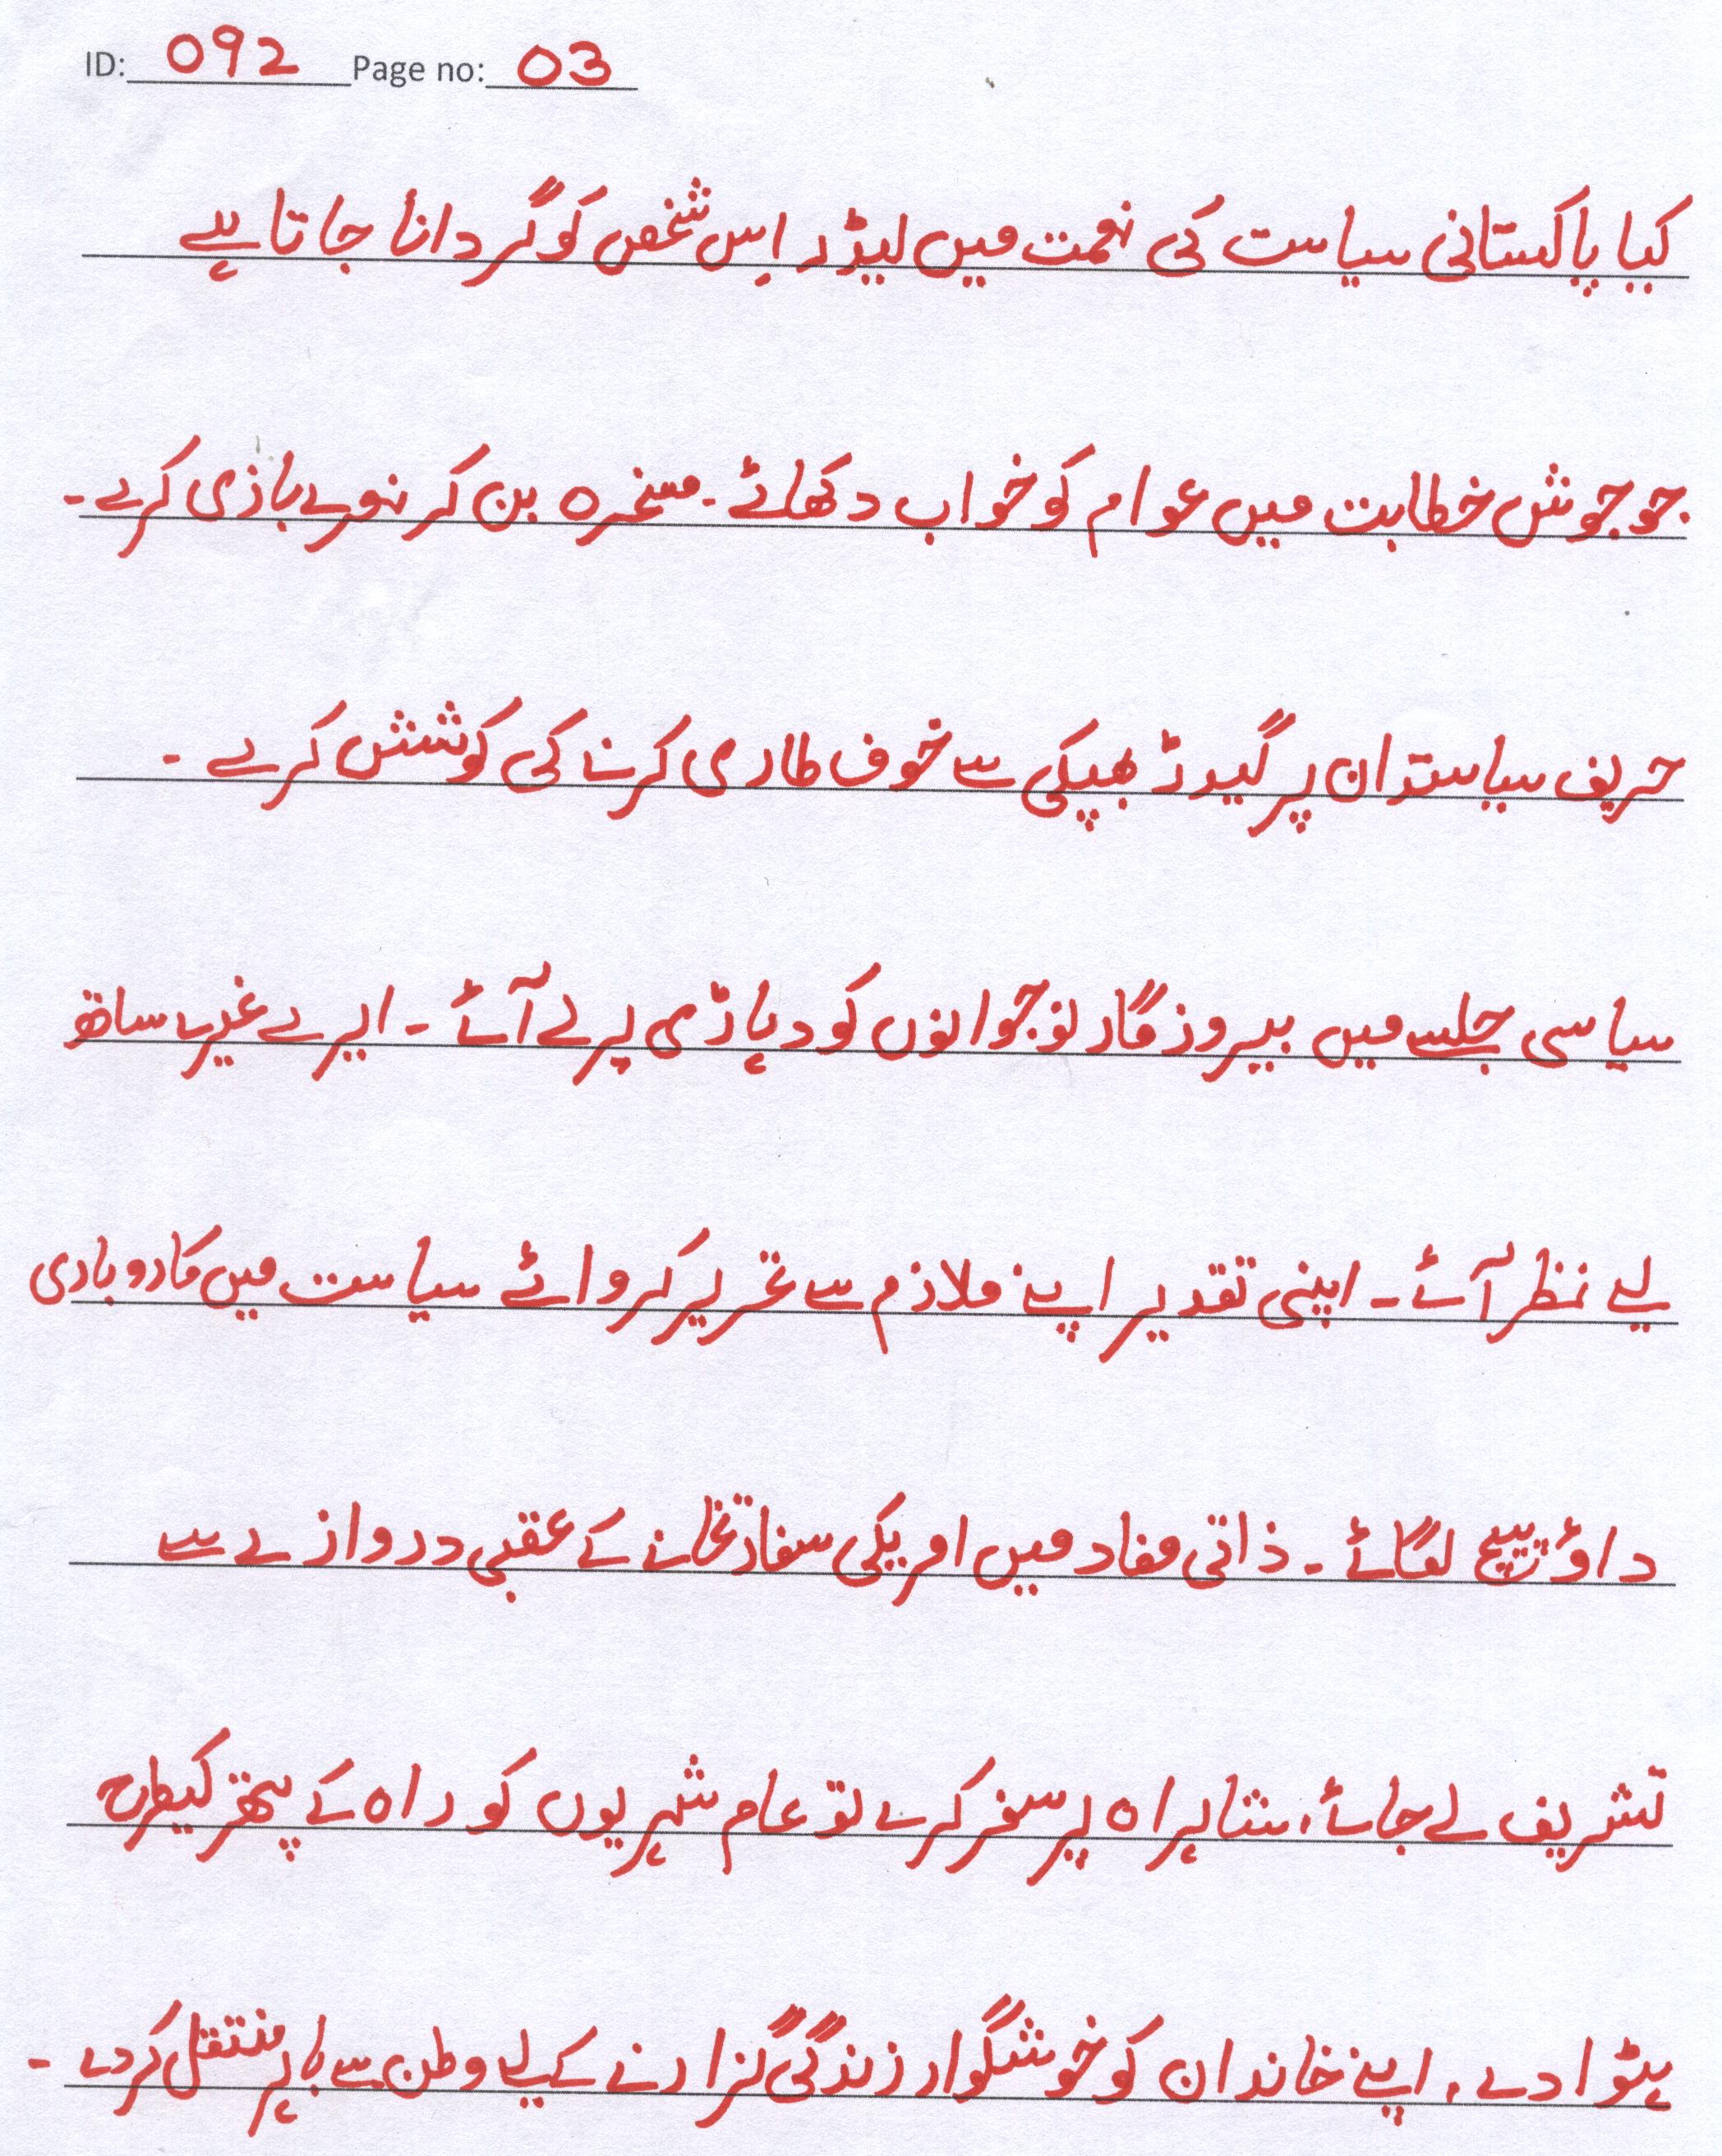 ID: 092 Page no: 03
کیا پاکستانی سیاست کی لغت میں لیڈر اس شخص کو گردانا جاتا ہے
جو جوش خطابت میں عوام کو خواب دکھائے۔ مسخرہ بن کر نعرے بازی کرے۔
حریف سیاستدان پر گیدڑ بھپکی سے خوف طاری کرنے کی کوشش کرے۔
سیاسی جلسے میں بیروزگار نوجوانوں کو دہاڑی پر لے آئے۔ ایرے غیرے ساتھ
لیے نظر آئے۔ اپنی تقدیر اپنے ملازم سے تحریر کروائے سیاست میں کاروباری
داؤ پیچ لگائے۔ ذاتی مفاد میں امریکی سفارتخانے کے عقبی دروازے سے
تشریف لے جائے، شاہراہ پر سفر کرے تو عام شہریوں کو راہ کے پتھر کیطرح
ہٹوا دے، اپنے خاندان کو خوشگوار زندگی گزارنے کے لیے وطن سے باہر منتقل کردے۔